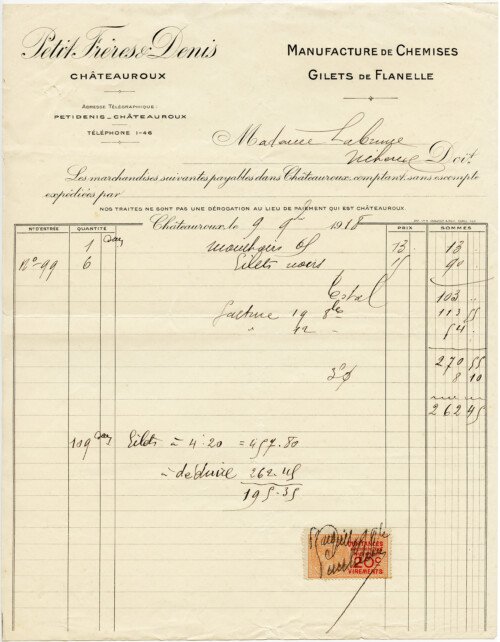 Petit Frères & Denis
CHÂTEAUROUX
ADRESSE TÉLÉGRAPHIQUE:
PETIDENIS_CHÂTEAUROUX
TÉLÉPHONE 1-46
MANUFACTURE DE CHEMISES
GILETS DE FLANELLE
Madame
Doit
Les marchandises suivantes payables dans Châteauroux, comptant, sans escompte
expédiées par
NOS TRAITES NE SONT PAS UNE DÉROGATION AU LIEU DE PAIEMENT QUI EST CHÂTEAUROUX.
Châteauroux, le 9 1918
N° D'ENTRÉE QUANTITÉ PRIX SOMMES
1 13 13
N° 99 6 Gilets noirs 15 90
Total 103
facture 19 113 55
" 22 54
270 55
3% 8 10
262 45
109 Gilets à 4.20 = 457.80
à déduire 262.45
195.35
QUITTANCES
20c
VIREMENTS